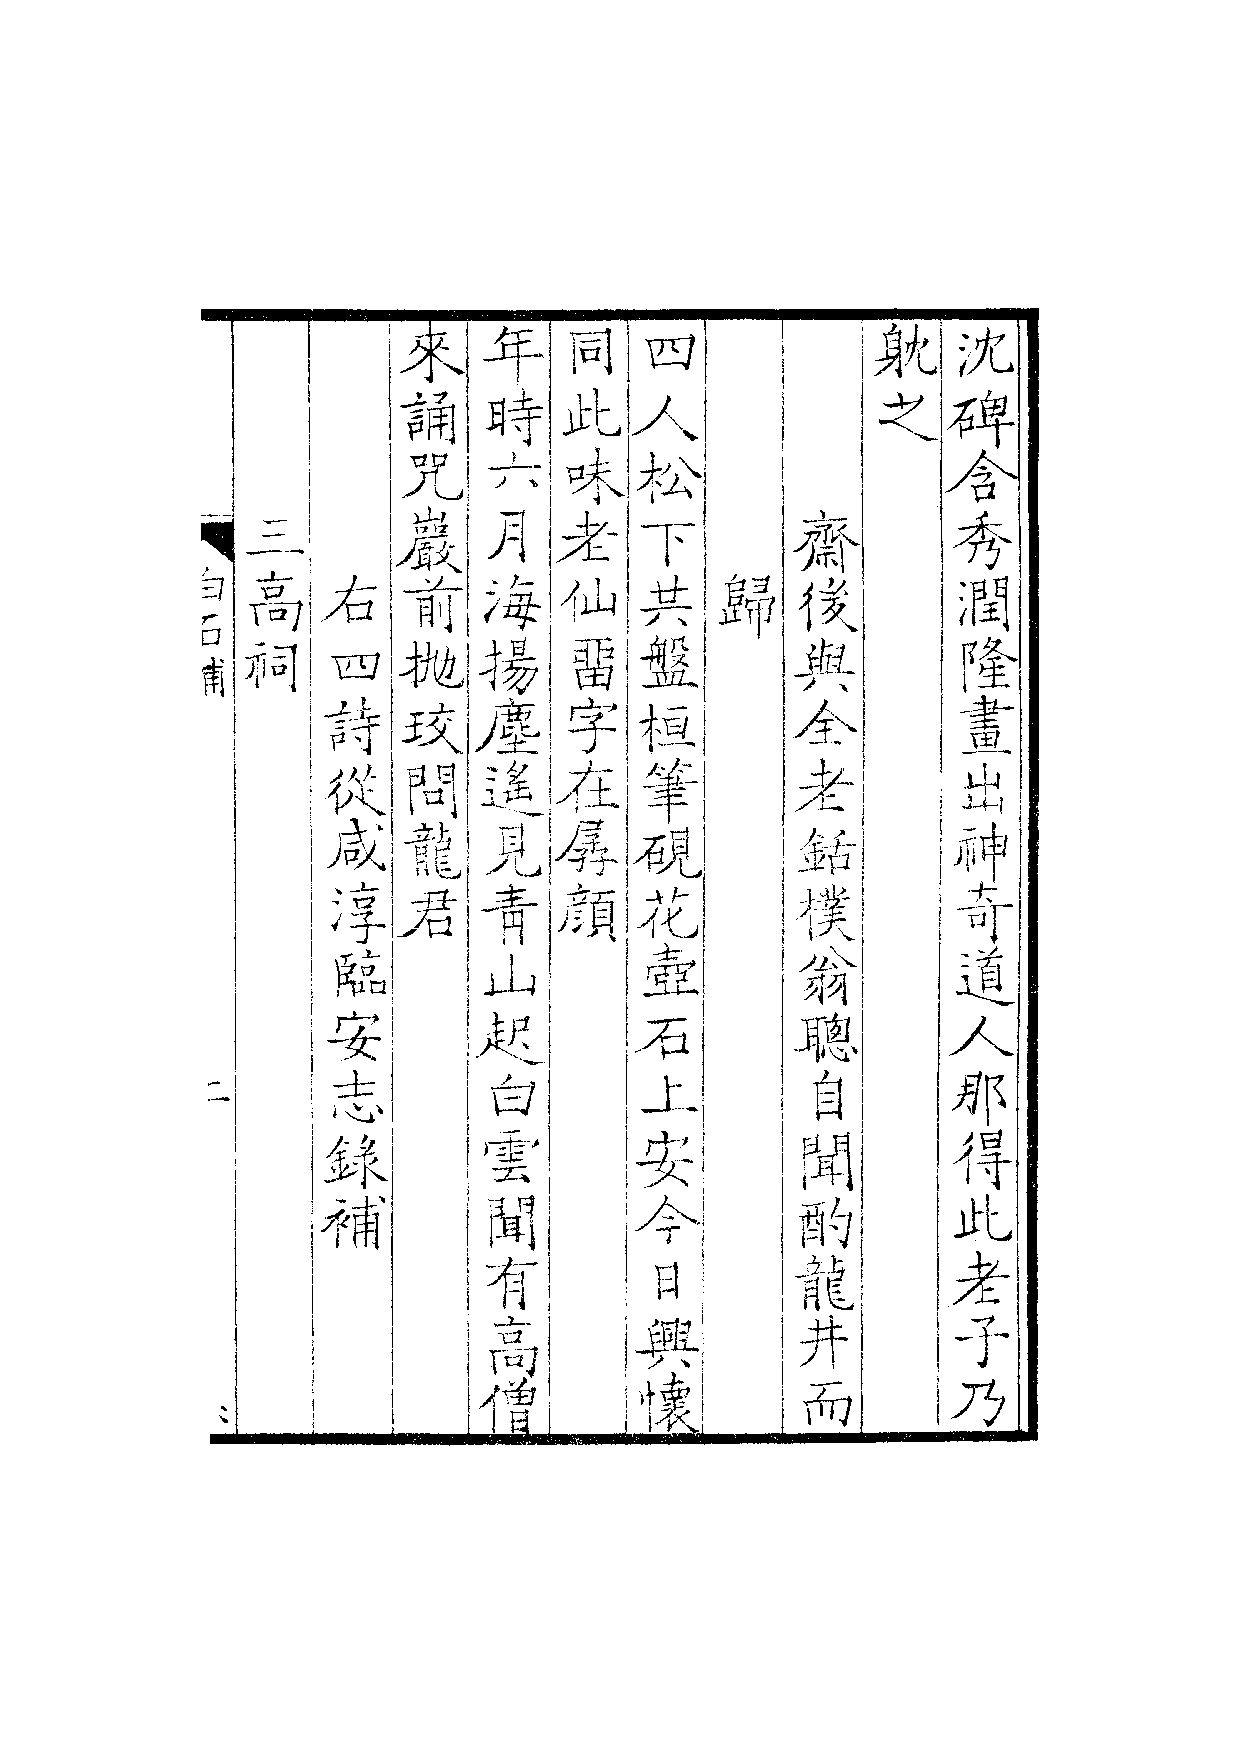 沈碑含秀潤隆畫出神奇道人那得此老子乃
躭之
齋後與全老銛樸翁聰自聞酌龍井而
歸
四人松下共盤桓筆硯花壺石上安今日興懷
同此味老仙畱字在孱顔
年時六月海揚塵遙見青山起白雲聞有高僧
來誦咒巖前拋珓問龍君
右四詩從咸淳臨安志錄補
三高祠
白石補
二